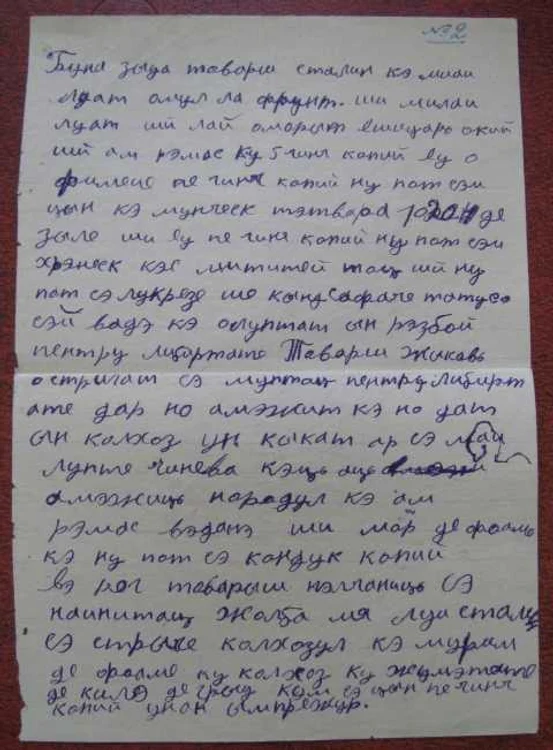 №2
Буна зыуа таварш сталин кэ милаи
луат омул ла фрунт. ши милаи
луат ший лай оморыт ешидарь окий
ший ам рэмас ку 5 чинч копий еу о
фимеие пе чинч копий ну пот сэи
цын кэ мунческ тэтвара де
зыле ши еу пе чинч копий ну пот сэи
хрэнеск кэс митител тоць ший ну
пот сэ лукрезе ше кынд сафаче тату са
сэй вадэ кэ олуптат ын рэзбой
пентру либиртате Таварш Жикавь
о стригат сэ луптаць пентру либирт
ате дар но амэжит кэ но дат
ын калхоз ун кыкат ар сэ май
лупте чинева кэць аць
амэжиць народул кэ ам
рэмас вэданэ ши мор де фоаме
кэ ну пот сэ кондук копий
вэ рог таварыш нэлцаниць сэ
наинитаць жалба мя луи сталин
сэ стрыче калхозул кэ мурим
де фоаме ку калхоз ку жумэтате
де килэ де грыу кум сэ цын пе чинч
копий унон ымпрежур.